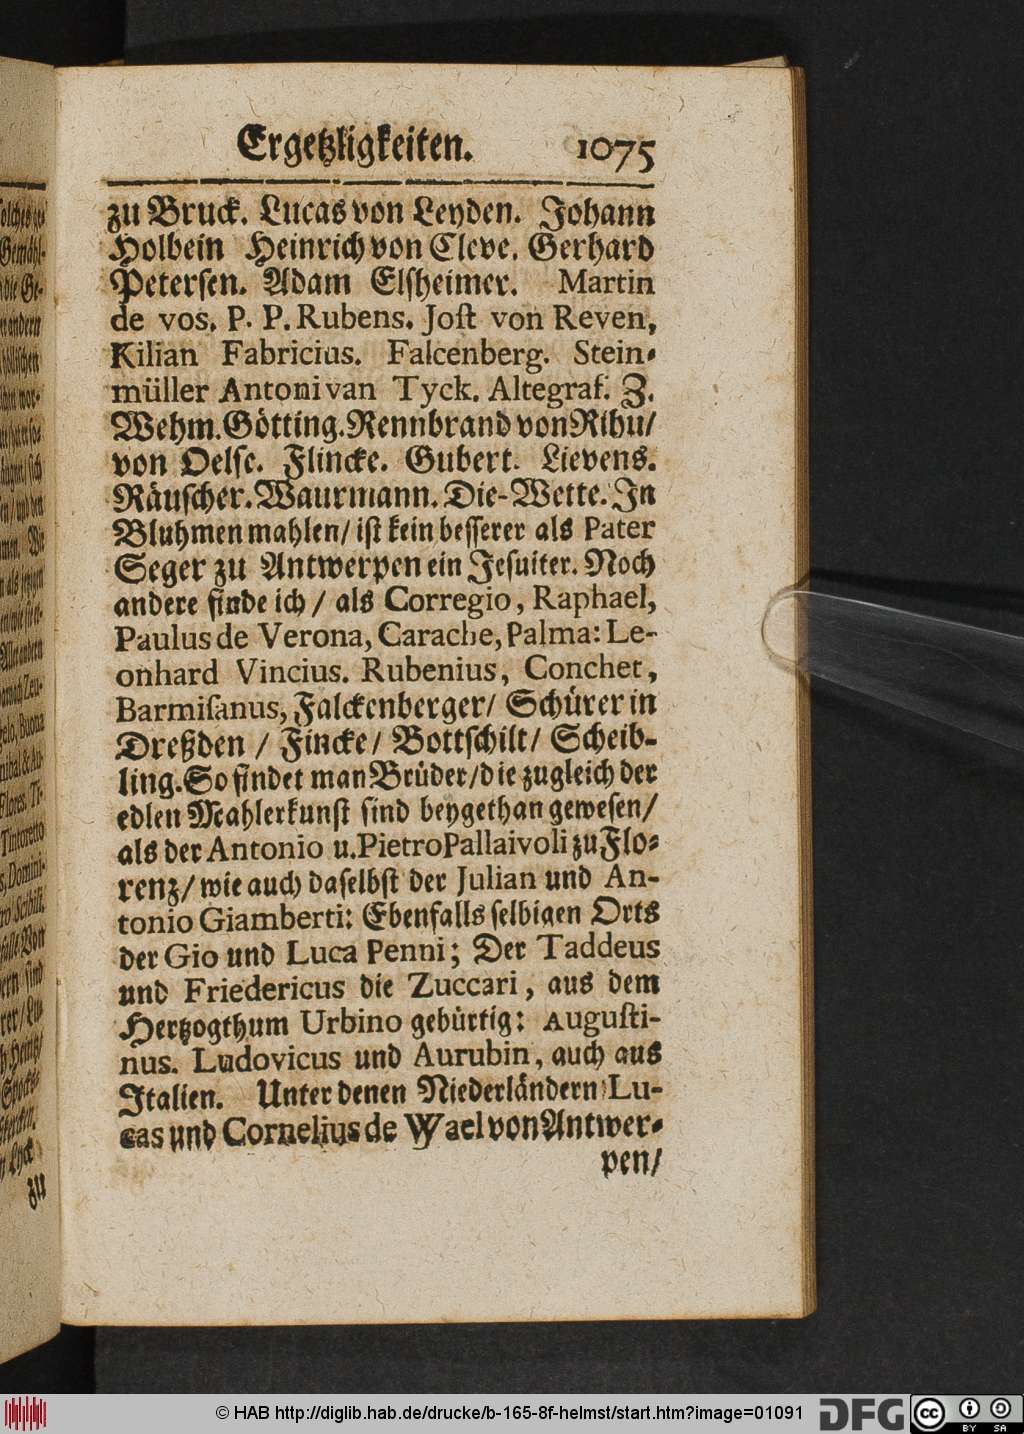 Ergetzligkeiten. 1075
zu Bruck. Lucas von Leyden. Johann
Holbein Heinrich von Cleve. Gerhard
Petersen. Adam Elsheimer. Martin
de vos. P. P. Rubens. Jost von Reven,
Kilian Fabricius. Falcenberg. Stein-
müller Antoni van Tyck. Altegraf. Z.
Wehm. Götting. Rennbrand von Rihu/
von Oelse. Flincke. Gubert. Lievens.
Räuscher. Waurmann. Die-Wette. In
Bluhmen mahlen/ ist kein besserer als Pater
Seger zu Antwerpen ein Jesuiter. Noch
andere finde ich / als Corregio, Raphael,
Paulus de Verona, Carache, Palma: Le-
onhard Vincius. Rubenius, Conchet,
Barmisanus, Falckenberger/ Schürer in
Dreßden / Fincke/ Bottschilt/ Scheib-
ling. So findet man Brüder/ die zugleich der
edlen Mahlerkunst sind beygethan gewesen/
als der Antonio u. Pietro Pallaivoli zu Flo-
renz/ wie auch daselbst der Julian und An-
tonio Giamberti: Ebenfalls selbigen Orts
der Gio und Luca Penni; Der Taddeus
und Friedericus die Zuccari, aus dem
Hertzogthum Urbino gebürtig: Augusti-
nus. Ludovicus und Aurubin, auch aus
Italien. Unter denen Niederländern Lu-
cas und Cornelius de Wael von Antwer-
pen/
© HAB http://diglib.hab.de/drucke/b-165-8f-helmst/start.htm?image=01091
DFG
cc BY SA